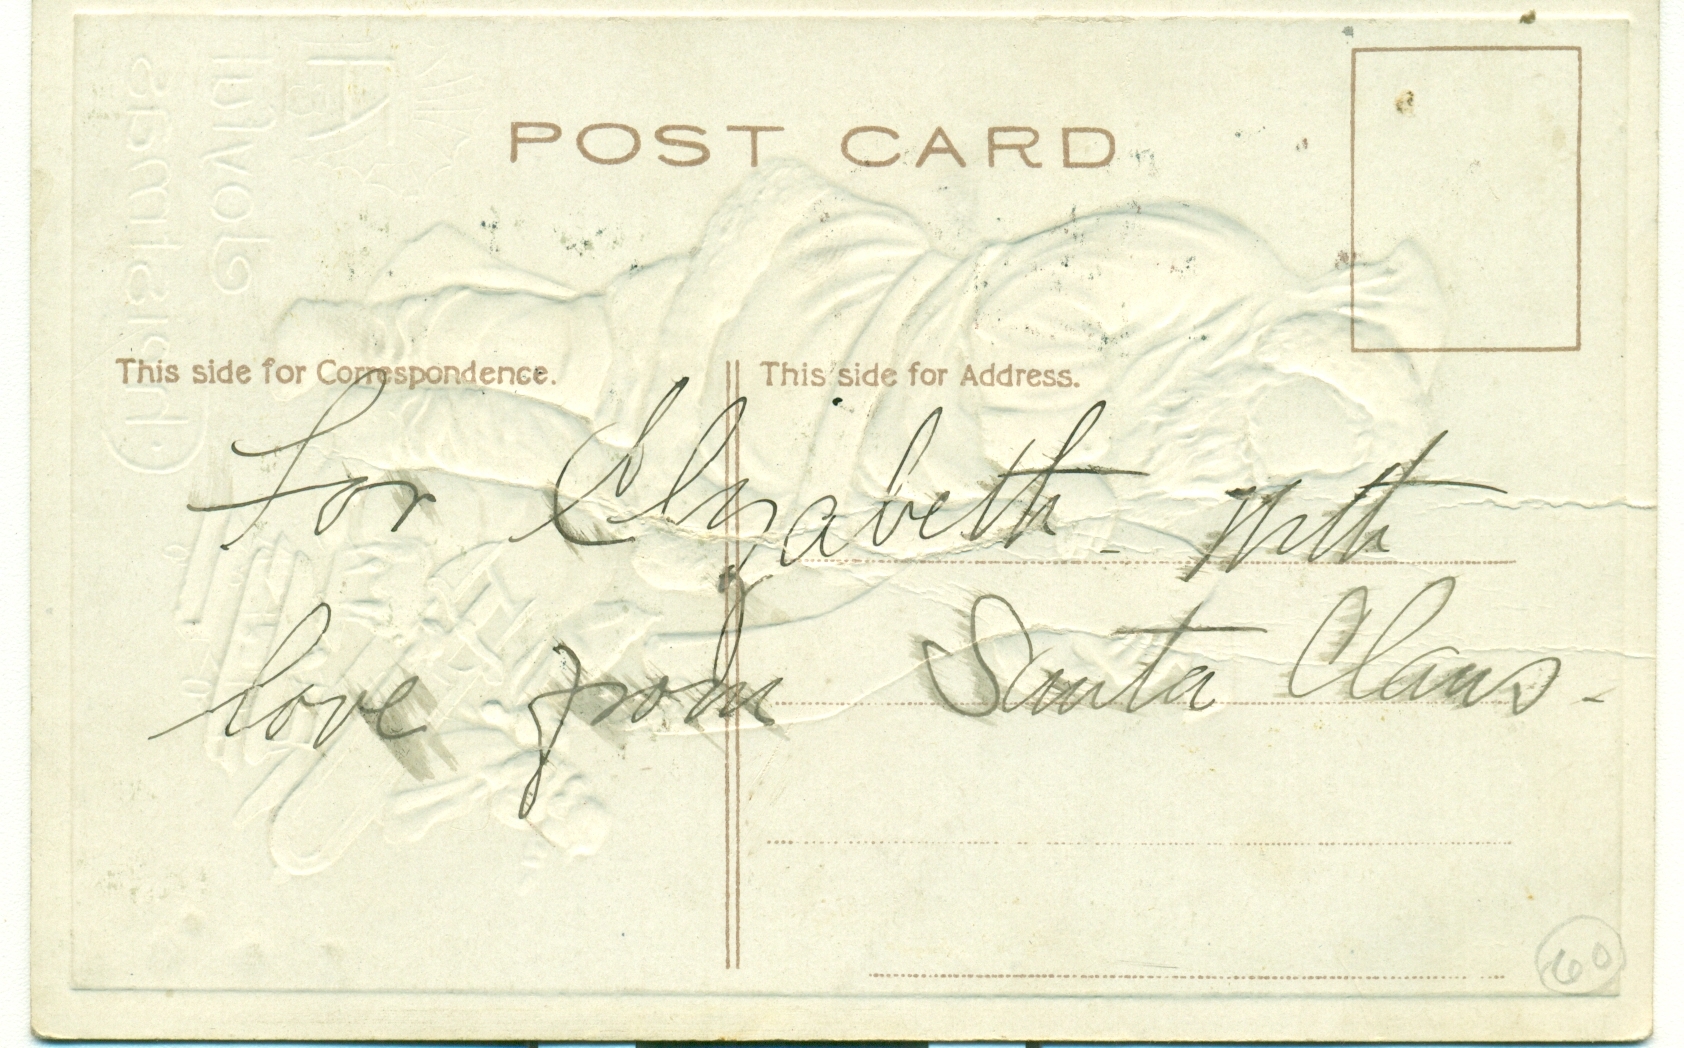 POST CARD
This side for Correspondence.
This side for Address.
For Elizabeth - With
love from Santa Claus -
60